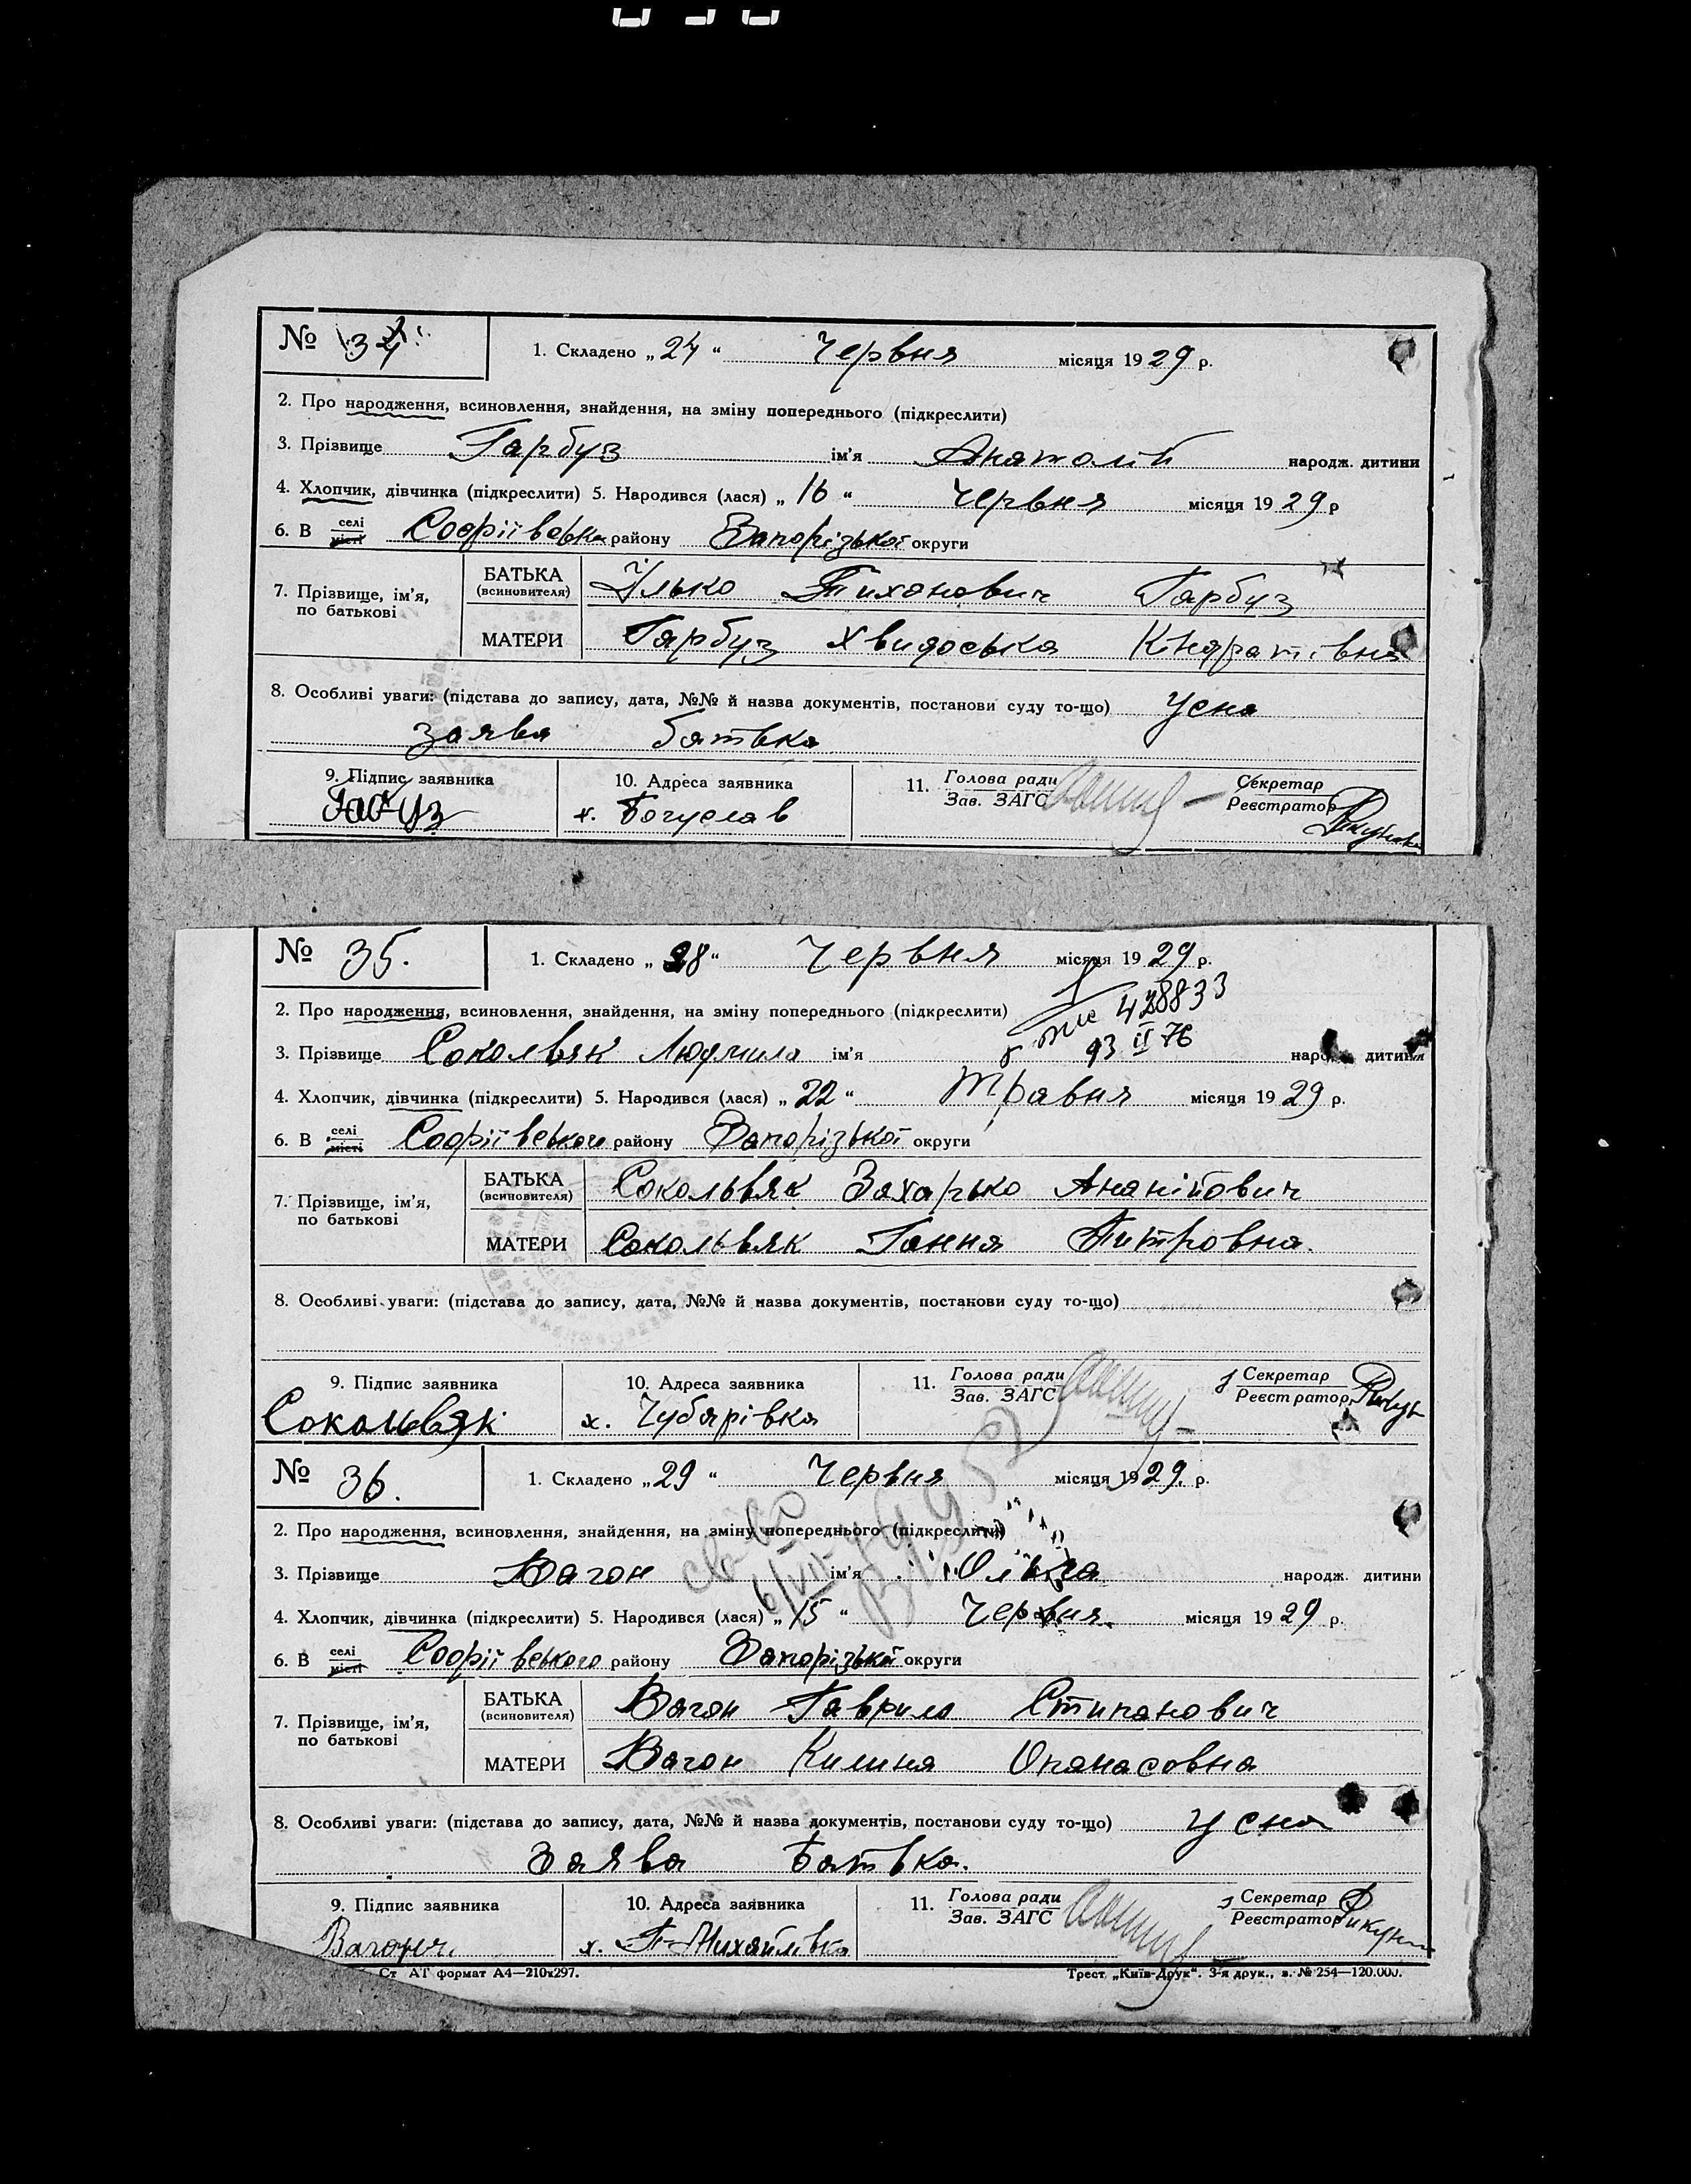 № 34
1. Складено „24“ Червня місяця 1929 р.
2. Про народження, всиновлення, знайдення, на зміну попереднього (підкреслити)
3. Прізвище Гарбуз ім'я Анатолій народж. дитини
4. Хлопчик, дівчинка (підкреслити) 5. Народився (лася) „16“ Червня місяця 1929 р
6. В селі місті району Запорізької округи
7. Прізвище, ім'я, по батькові
БАТЬКА (всиновителя) Ілько Тихонович Гарбуз
МАТЕРИ Гарбуз Хвидоська Кндратівна
8. Особливі уваги: (підстава до запису, дата, №№ й назва документів, постанови суду то-що) Усна
заява батька
9. Підпис заявника 10. Адреса заявника 11. Голова ради Зав. ЗАГС Секретар Реєстратор
Гарбуз х. Богуслав
№ 35.
1. Складено „28“ Червня місяця 1929 р.
2. Про народження, всиновлення, знайдення, на зміну попереднього (підкреслити)
428833
3. Прізвище Сокольвяк Людмила ім'я народж. дитини
4. Хлопчик, дівчинка (підкреслити) 5. Народився (лася) „22“ Травня місяця 1929 р.
6. В селі місті Софіївського району Запорізької округи
7. Прізвище, ім'я, по батькові
БАТЬКА (всиновителя) Сокольвяк Захарько Ананійович
МАТЕРИ Сокольвяк Гання Питровна.
8. Особливі уваги: (підстава до запису, дата, №№ й назва документів, постанови суду то-що)
9. Підпис заявника 10. Адреса заявника 11. Голова ради Зав. ЗАГС Секретар Реєстратор
Сокольвяк х. Чубарівка
№ 36.
1. Складено „29“ Червня місяця 1929. р.
2. Про народження, всиновлення, знайдення, на зміну попереднього (підкреслити)
3. Прізвище Вагон ім'я Ольга народж. дитини
4. Хлопчик, дівчинка (підкреслити) 5. Народився (лася) „15“ Червня. місяця 1929 р.
6. В селі місті Софіївського району Запорізької округи
7. Прізвище, ім'я, по батькові
БАТЬКА (всиновителя) Вагон Гаврило Стипанович
МАТЕРИ Вагон Килиня Опанасовна
8. Особливі уваги: (підстава до запису, дата, №№ й назва документів, постанови суду то-що) Усна
Заява Батька.
9. Підпис заявника 10. Адреса заявника 11. Голова ради Зав. ЗАГС Секретар Реєстратор
х. П-Михайлівка
Ст АТ формат А4—210х297. Трест „Київ-Друк“. 3-я друк., з. № 254—120.000.